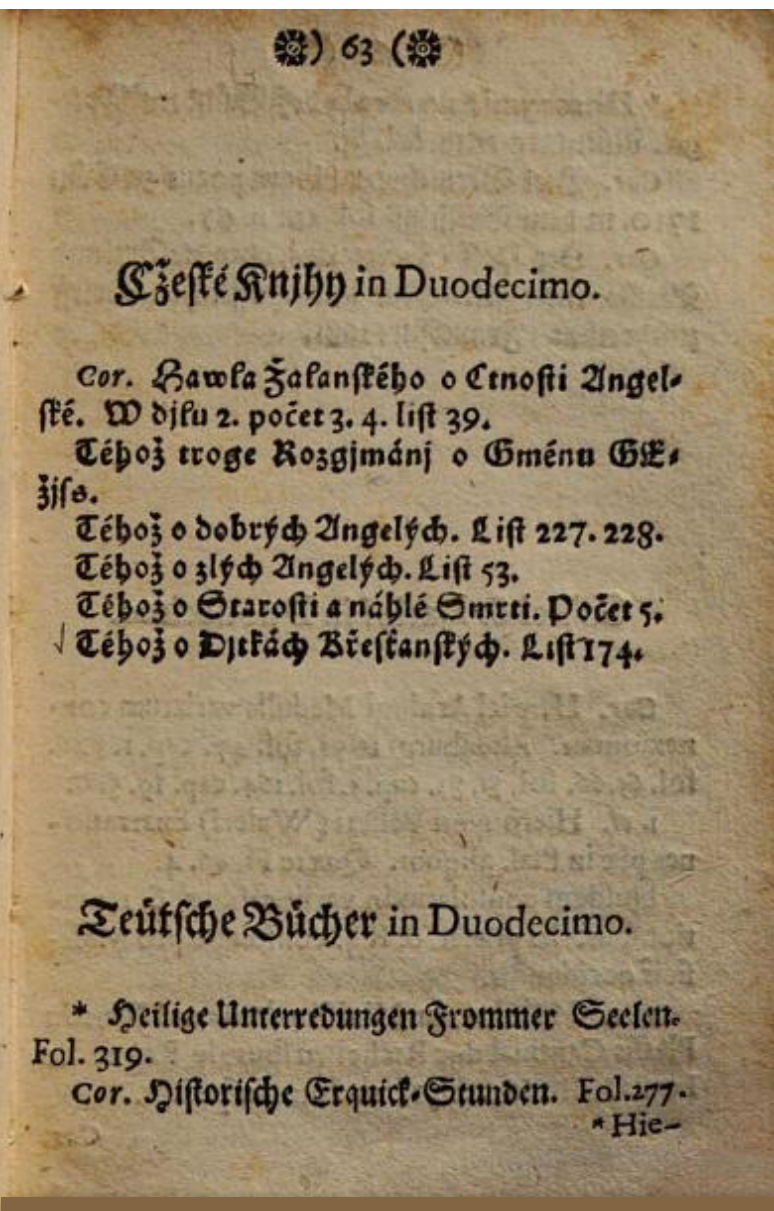 ) 63 (
Cžeſké Knjhy in Duodecimo.
Cor. Hawla Žalanſkého o Ctnoſti Angel-
ſké. W djlu 2. počet 3. 4. liſt 39.
Téhož troge Rozgjmánj o Gménu GE-
žjſe.
Téhož o dobrých Angelých. Liſt 227. 228.
Téhož o zlých Angelých. Liſt 53.
Téhož o Staroſti a náhlé Smrti. Počet 5.
√ Téhož o Djtkách Křeſťanſkých. Liſt 174.
Teütſche Bücher in Duodecimo.
* Heilige Unterredungen Frommer Seelen.
Fol. 319.
Cor. Hiſtoriſche Erquick-Stunden. Fol. 277.
* Hie-